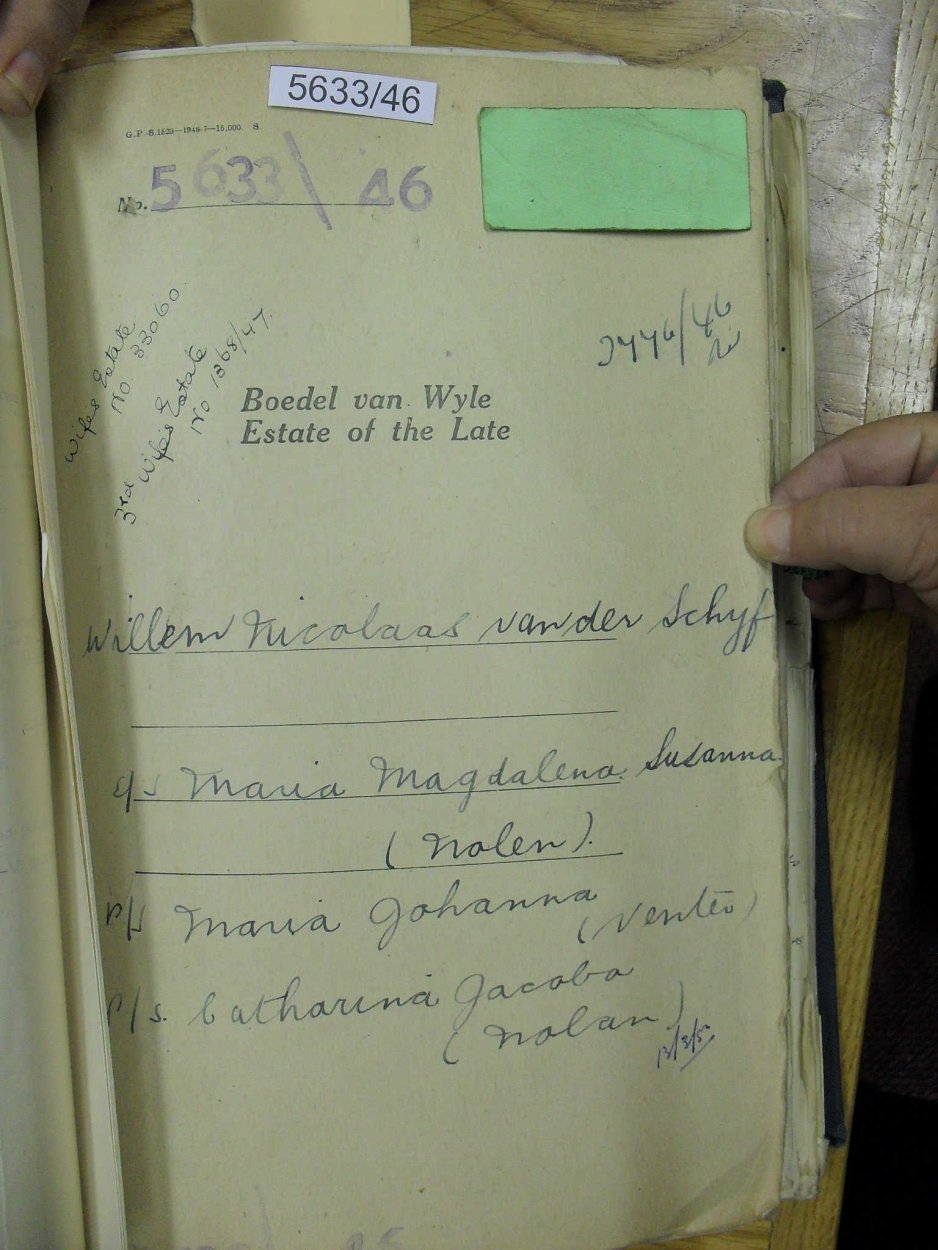 5633/46
G.P.-S.1523—1946-7—15,000. S.
No. 5633/46
Wifes Estate
No. 33060.
3rd Wife's Estate
No 1368/47.
Boedel van Wyle
Estate of the Late
Willem Nicolaas van der Schyf
s/s Maria Magdalena Susanna
(Nolen).
p/s Maria Johanna
(Venter)
p/s. Catharina Jacoba
(Nolan)